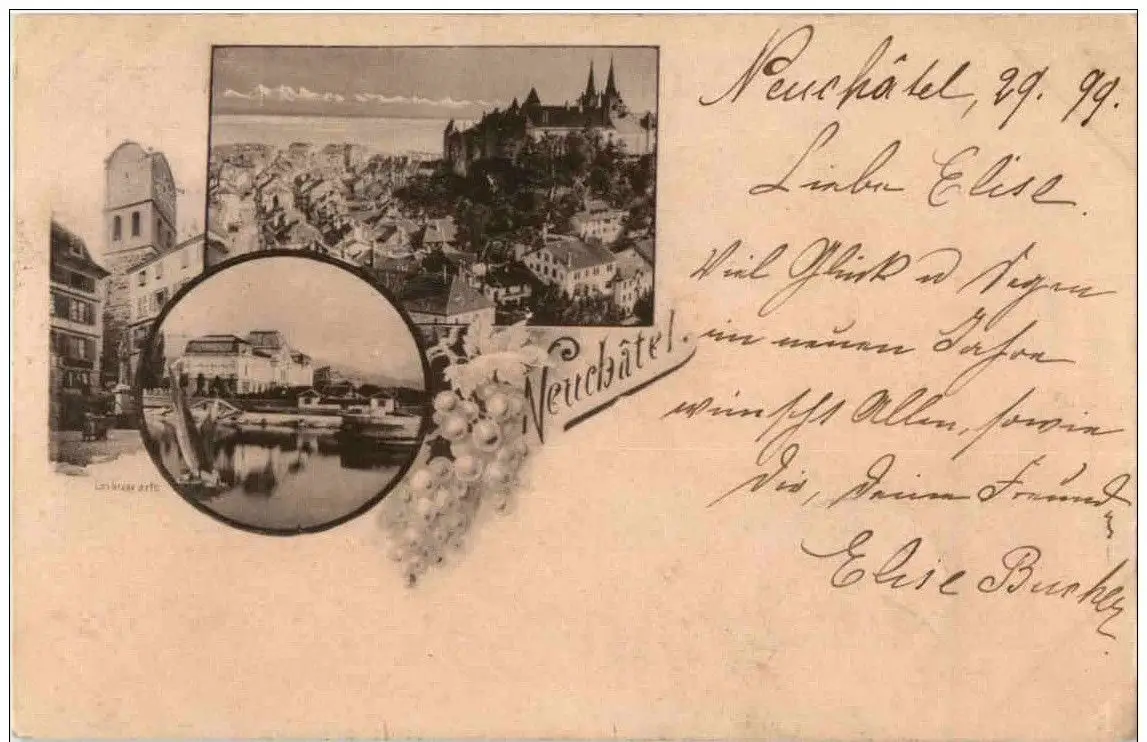 Neuchâtel, 29. 99.
Liebe Elise.
Viel Glück u Segen
im neuen Jahre
wünscht Allen, sowie
Dir, Deine Freundin
Elise Bucher
Neuchâtel.